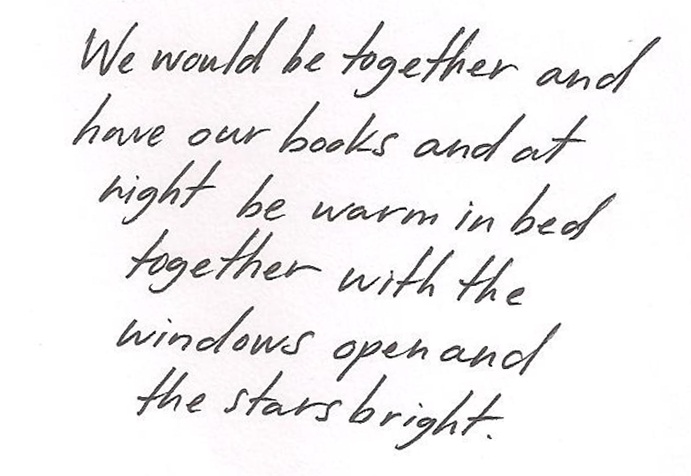 We would be together and
have our books and at
night be warm in bed
together with the
windows open and
the stars bright.